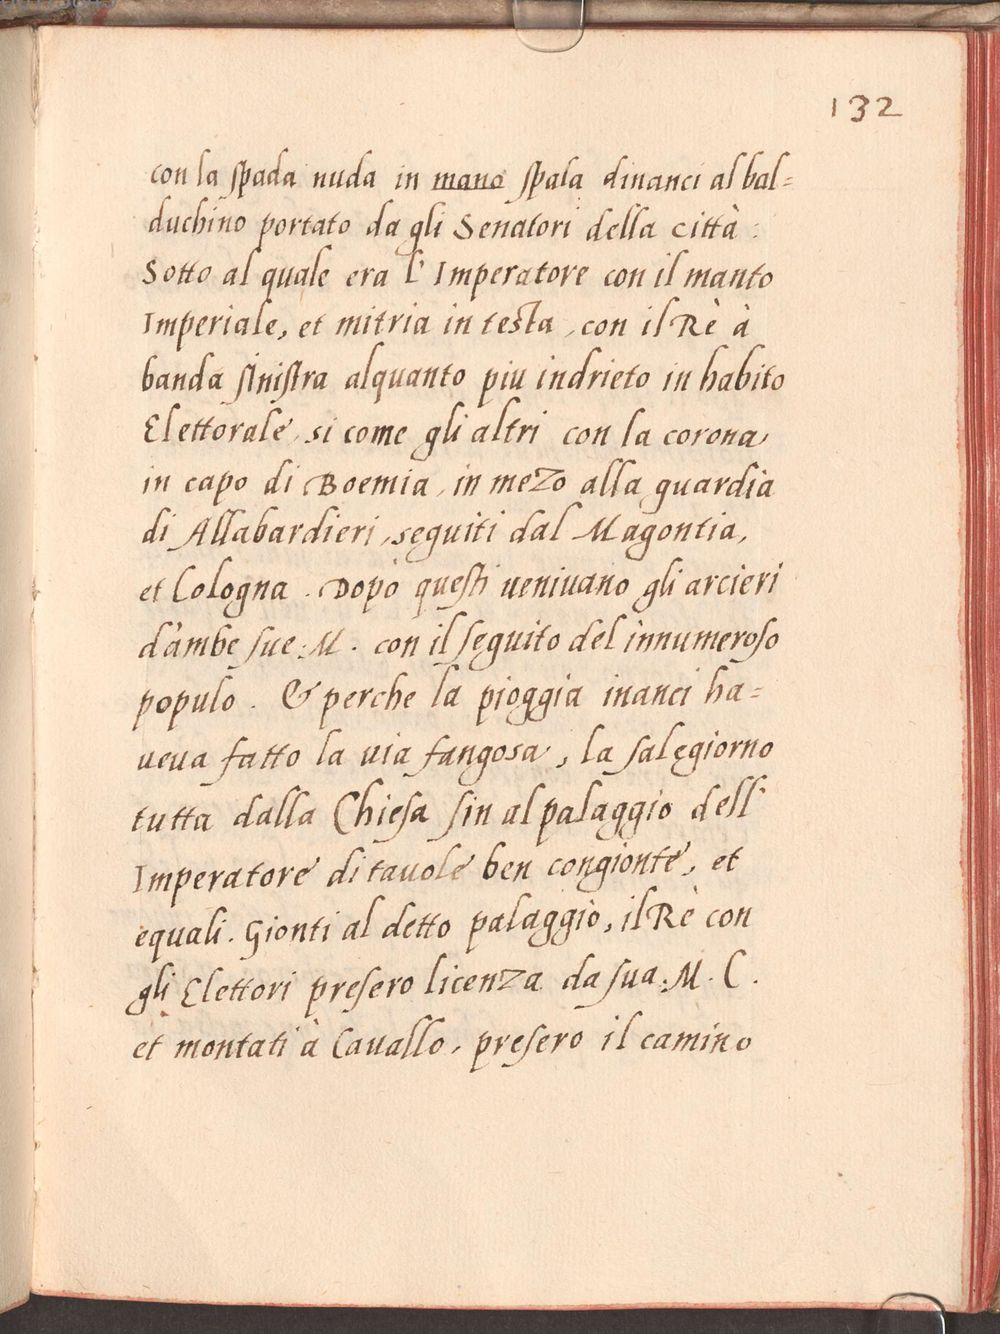 132
con la spada nuda in mano spala dinanci al bal=
duchino portato da gli Senatori della città :
Sotto al quale era l' Imperatore con il manto
Imperiale, et mitria in testa, con il Rè à
banda sinistra alquanto piu indrieto in habito
Elettorale, si come gli altri con la corona
in capo di Boemia, in mezo alla guardia
di Allabardieri, seguiti dal Magontia,
et Cologna. Dopò questi veniuano gli arcieri
d'ambe sue. M. con il seguito del innumeroso
populo. & perche la pioggia inanci ha=
veva fatto la via fangosa, la salegiorno
tutta dalla Chiesa sin al palaggio dell'
Imperatore di tauole ben congionte, et
equali. Gionti al detto palaggio, il Rè con
gli Elettori presero licenza da sua. M. C.
et montati à Cauallo, presero il camino